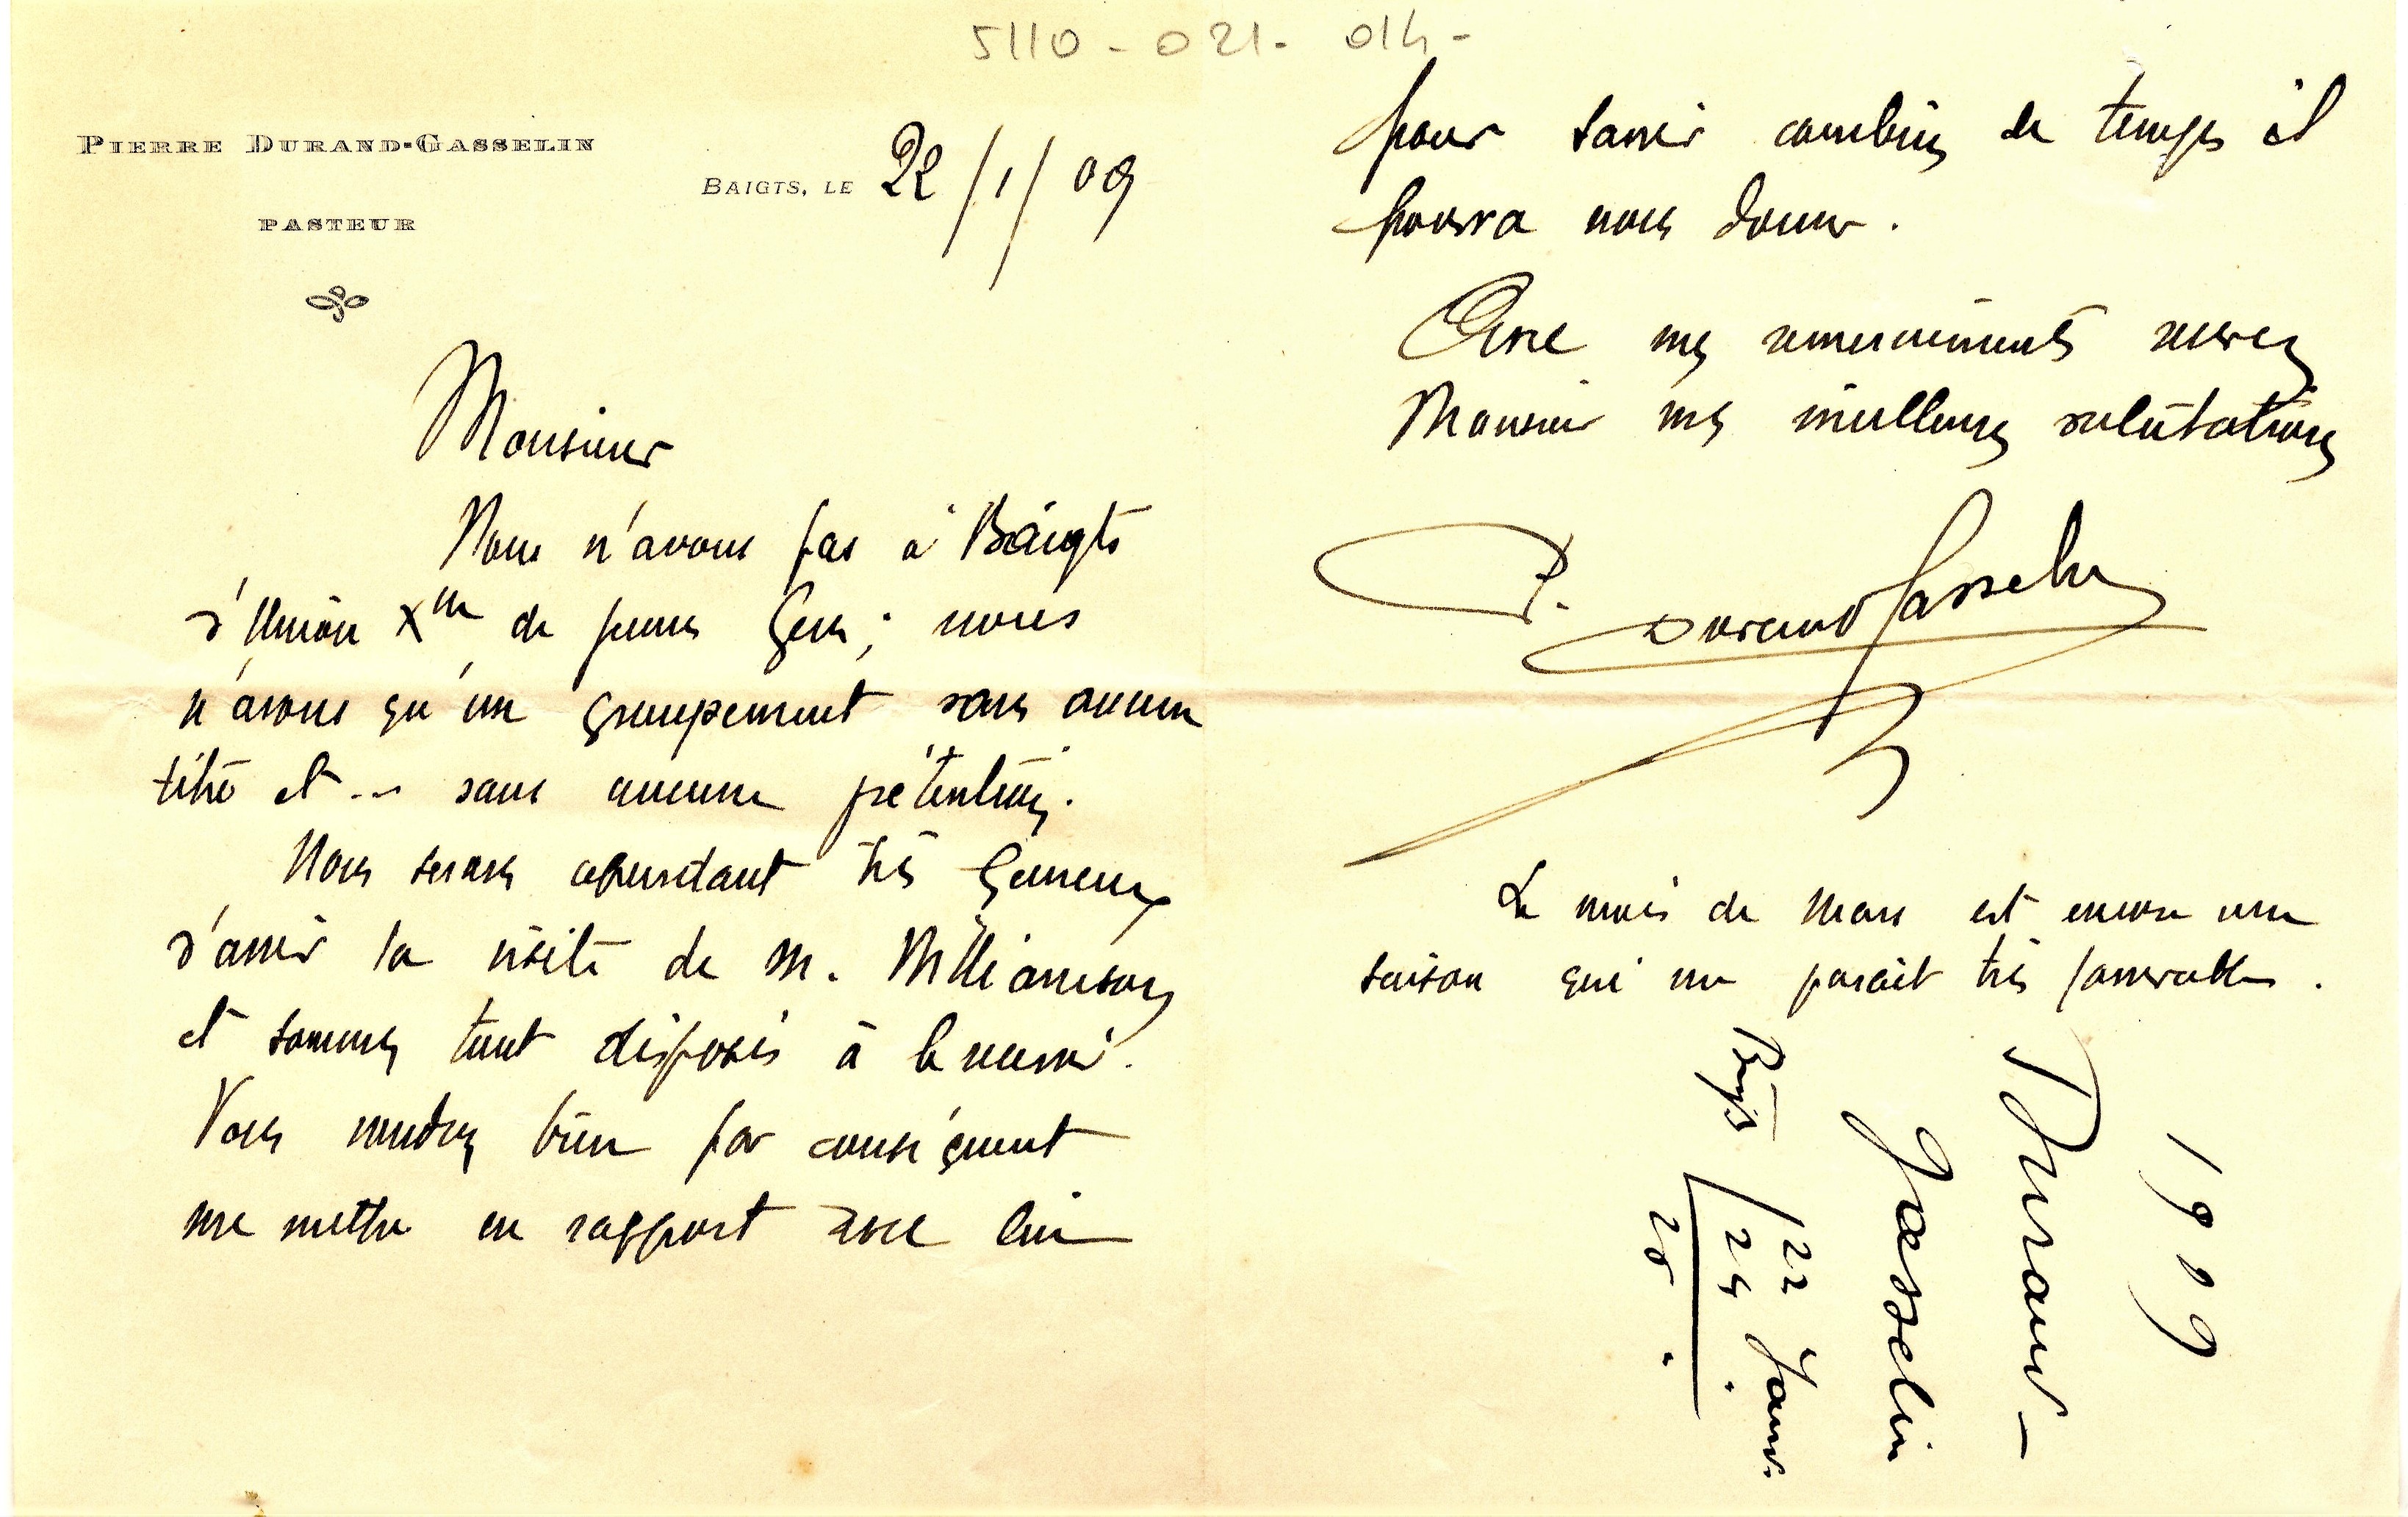 5110 - 021 - 014 -
PIERRE DURAND-GASSELIN
PASTEUR
BAIGTS, LE 22/1/09
Monsieur
Nous n'avons pas à Baigts
d'Union Xne de jeunes Gens ; nous
n'avons qu'un groupement sans aucun
titre et ... sans aucune prétention.
Nous serons cependant très heureux
d'avoir la visite de M. Williamson
et sommes tout disposés à le recevoir.
Vous voudrez bien par conséquent
me mettre en rapport avec lui
pour savoir combien de temps il
pourra nous donner.
Avec mes remerciements recevez
Monsieur mes meilleures salutations
P. Durand Gasselin
Le mois de Mars est encore une
saison qui me parait très favorable.
1909
Durand-
Gasselin
Baigts
22 Janv.
24 .